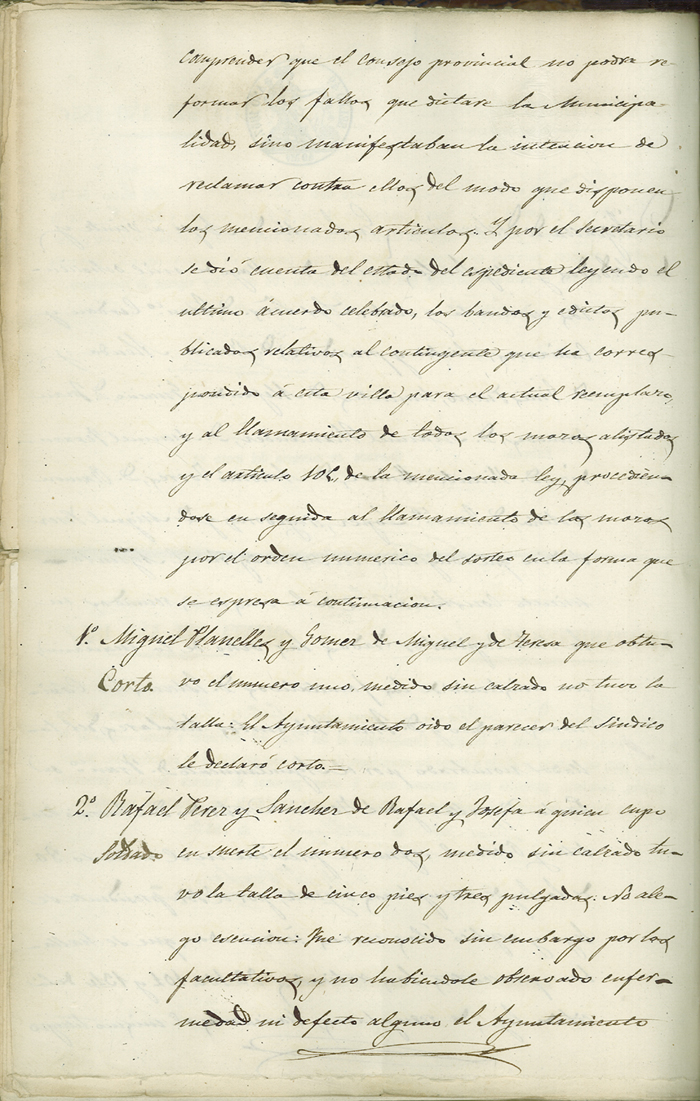 comprender que el consejo provincial no podra re-
formar los fallos que dictare la Municipa-
lidad, sino manifestaban la intencion de
reclamar contra ellos del modo que disponen
los mencionados articulos. Y por el secretario
se dió cuenta del estado del espediente leyendo el
ultimo ácuerdo celebrado, los bandos y edictos pu-
blicados relativos al contingente que ha corres-
pondido á esta villa para el actual reemplazo,
y al llamamiento de todos los mozos alistados
y el articulo de la mencionada ley, procedien-
dose en seguida al llamamiento de los mozos
por el orden numerico del sorteo en la forma que
se espresa á continuacion.
1º. Miguel Planelles y Gomez de Miguel y de Teresa que obtu-
Corto. vo el numero uno, medido sin calzado no tuvo la
talla: El Ayuntamiento oido el parecer del Sindico
le declaró corto.—
2º. Rafael Perez y Sanchez de Rafael y Josefa á quien cupo
Soldado en suerte el numero dos, medido sin calzado tu-
vo la talla de cinco pies y tres pulgadas: No ale-
go esencion: Fue reconocido sin embargo por los
facultativos, y no habiendole observado enfer-
medad ni defecto alguno el Ayuntamiento